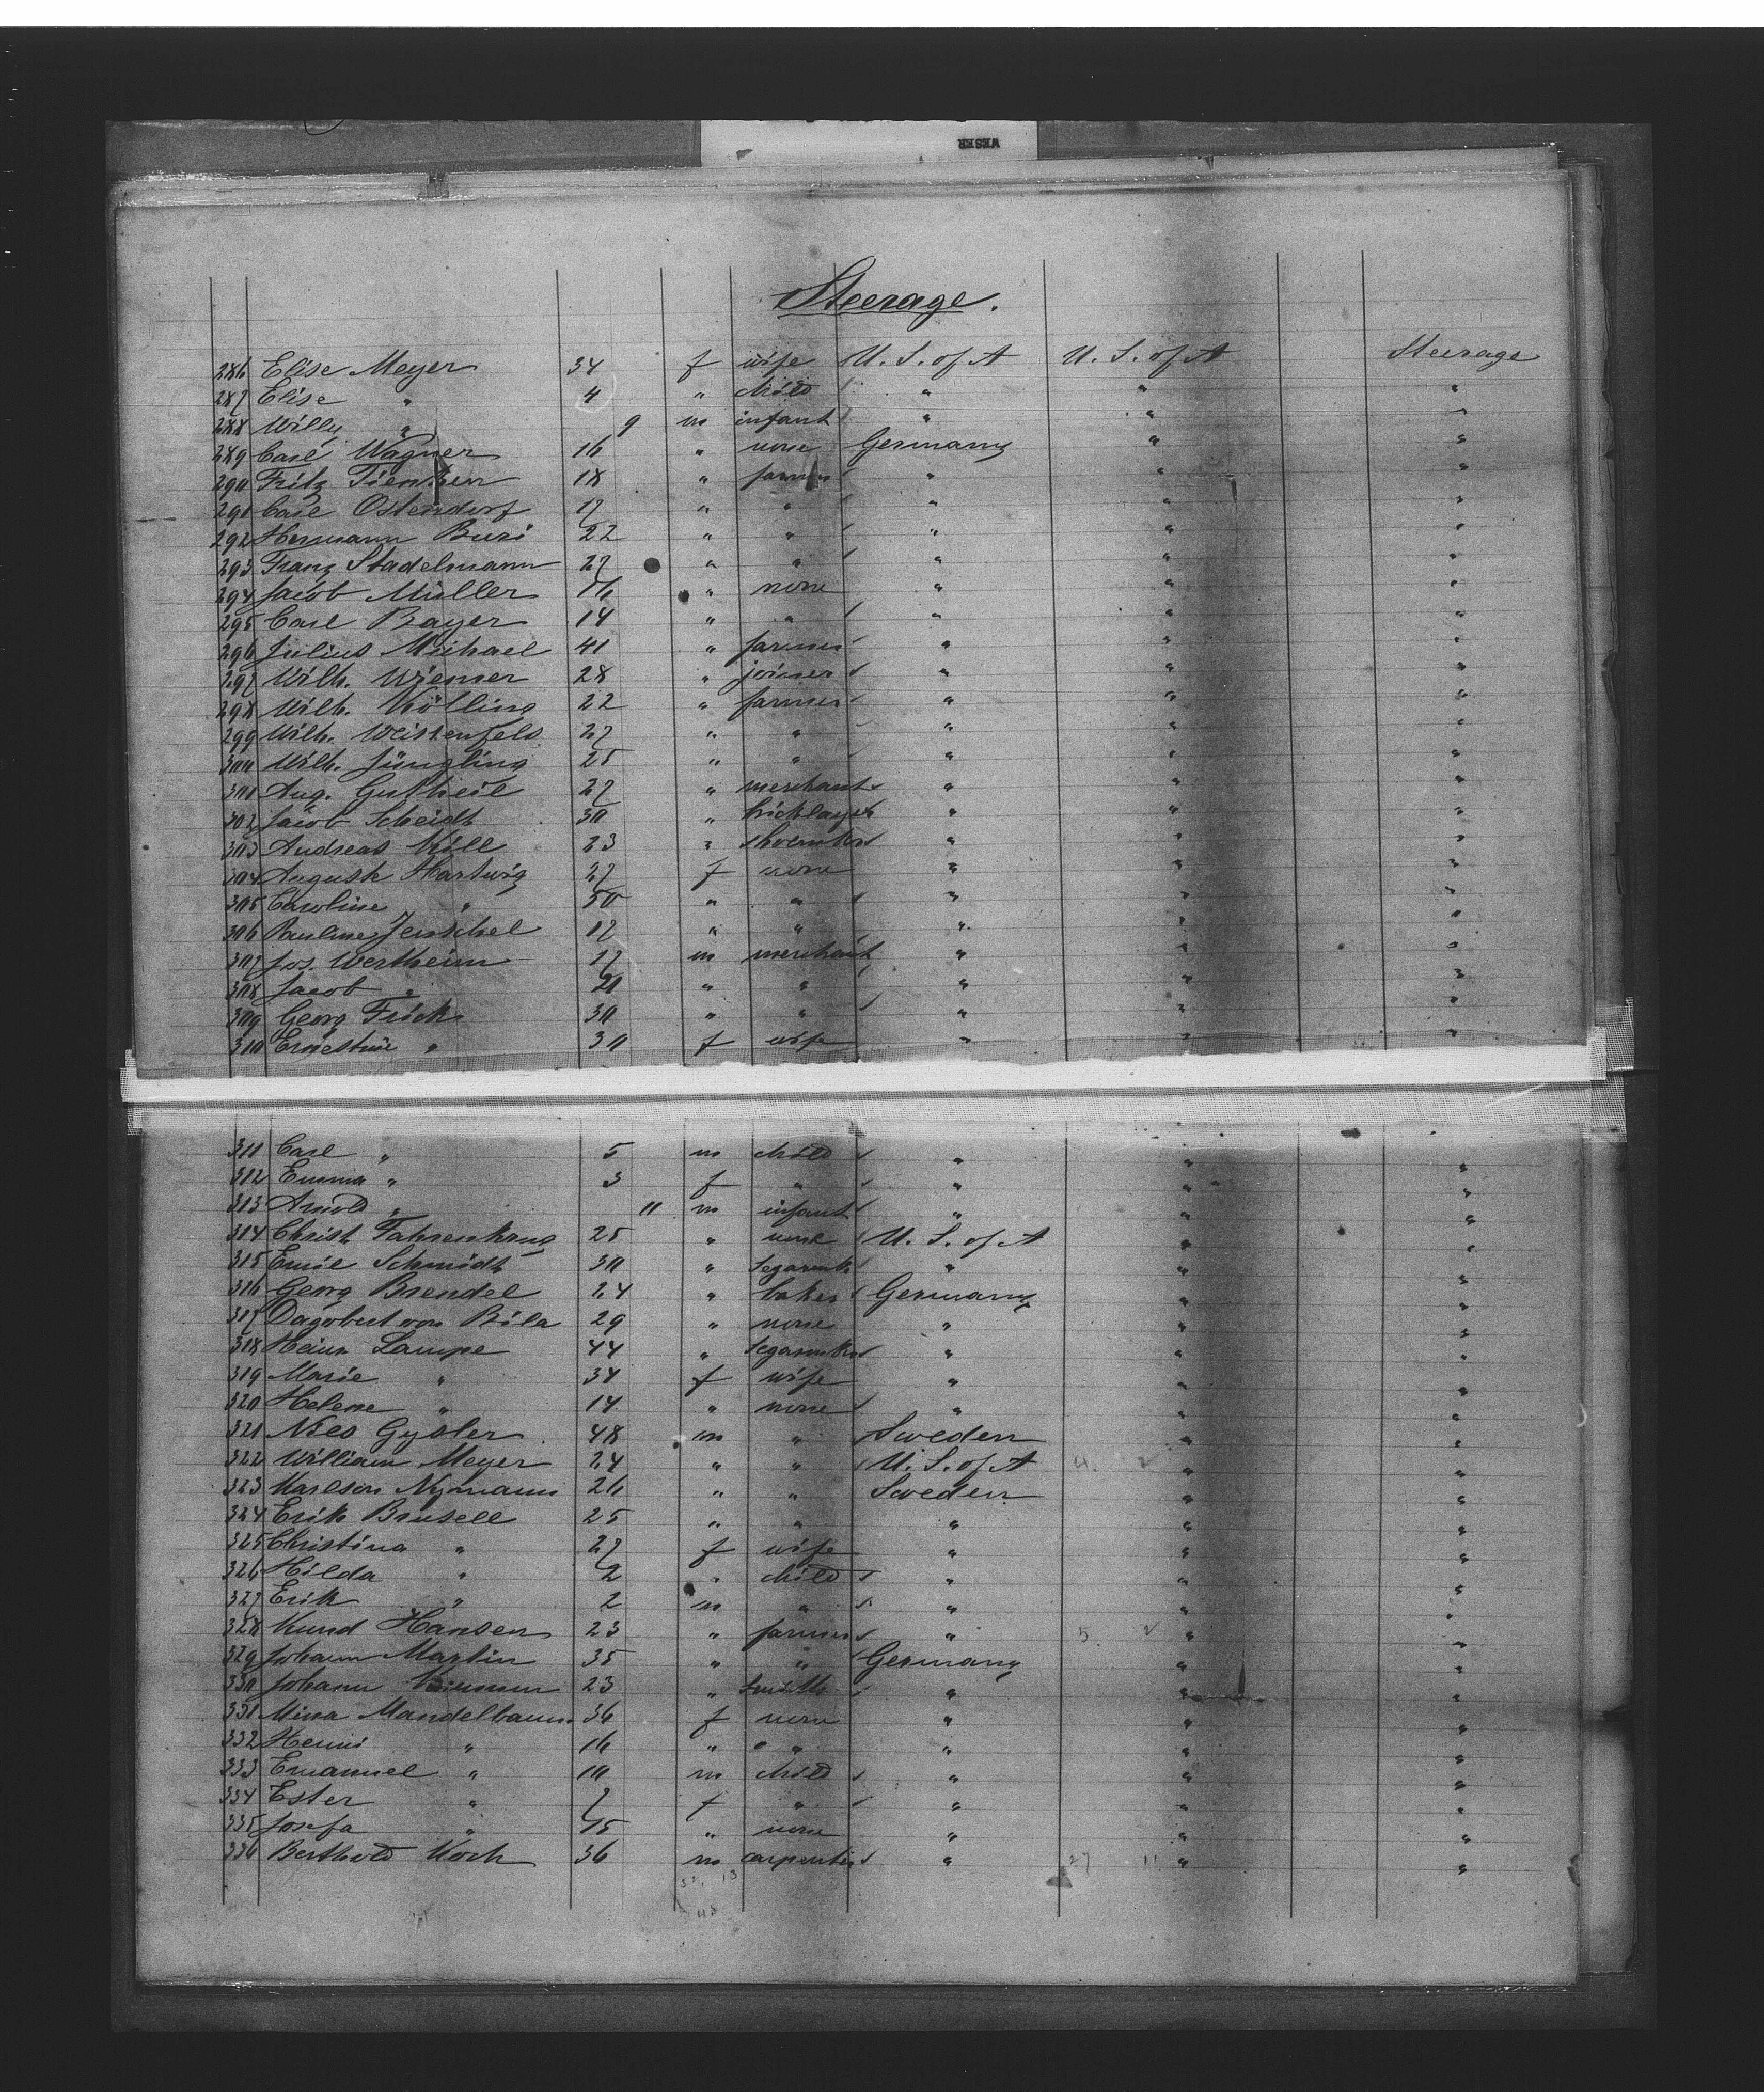 WESER
Steerage.
286 Elise Meyer 34 f wife U. S. of A U. S. of A Steerage
287 Elise " 4 " child " " "
288 Willy " 9 m infant " " "
289 Carl Wagner 16 " none Germany " "
290 Fritz Tienken 18 " farmer " " "
291 Carl Ostendorf 17 " " " " "
292 Hermann Buri 22 " " " " "
293 Franz Stadelmann 27 " " " " "
294 Jacob Müller 16 " none " " "
295 Carl Bayer 14 " " " " "
296 Julius Michael 41 " farmer " " "
297 Wilh. Wiemer 28 " joiner " " "
298 Wilh. Kölling 22 " farmer " " "
299 Wilh. Weissenfels 27 " " " " "
300 Wilh. Jüngling 25 " " " " "
301 Aug. Gutheil 27 " merchant " " "
302 Jacob Scheidt 30 " bricklayer " " "
303 Andreas Köll 23 " shoemker " " "
304 Auguste Hartwig 27 f none " " "
305 Caroline " 50 " " " " "
306 Pauline Jenschel 17 " " " " "
307 Jos. Wertheim 17 m merchant " " "
308 Jacob " 20 " " " " "
309 Georg Frick 30 " " " " "
310 Ernestine " 30 f wife " " "
311 Carl " 5 m child " " "
312 Emma " 3 f " " " "
313 Arnold " 11 m infant " " "
314 Christ Fahrenkrug 25 " none U. S. of A " "
315 Emil Schmidt 30 " Segarmk " " "
316 Georg Brendel 24 " baker Germany " "
317 Dagobert von Bila 29 " none " " "
318 Heinr Lampe 44 " Segarmker " " "
319 Marie " 34 f wife " " "
320 Helene " 14 " none " " "
321 Nils Gysler 48 m " Sweden " "
322 William Meyer 24 " " U. S. of A " "
323 Karlson Nymann 26 " " Sweden " "
324 Erik Brusell 25 " " " " "
325 Christina " 27 f wife " " "
326 Hilda " 2 " child " " "
327 Erik " 2 m " " " "
328 Knud Hansen 23 " farmer " " "
329 Johann Martin 35 " " Germany " "
330 Johann 23 " Smith " " "
331 Mina Mandelbaum 36 f none " " "
332 Henni " 16 " " " " "
333 Emanuel " 10 m child " " "
334 Ester " 7 f " " " "
335 Josefa " 15 " none " " "
336 Berthold Koch 36 m carpenter 27 11 " " "